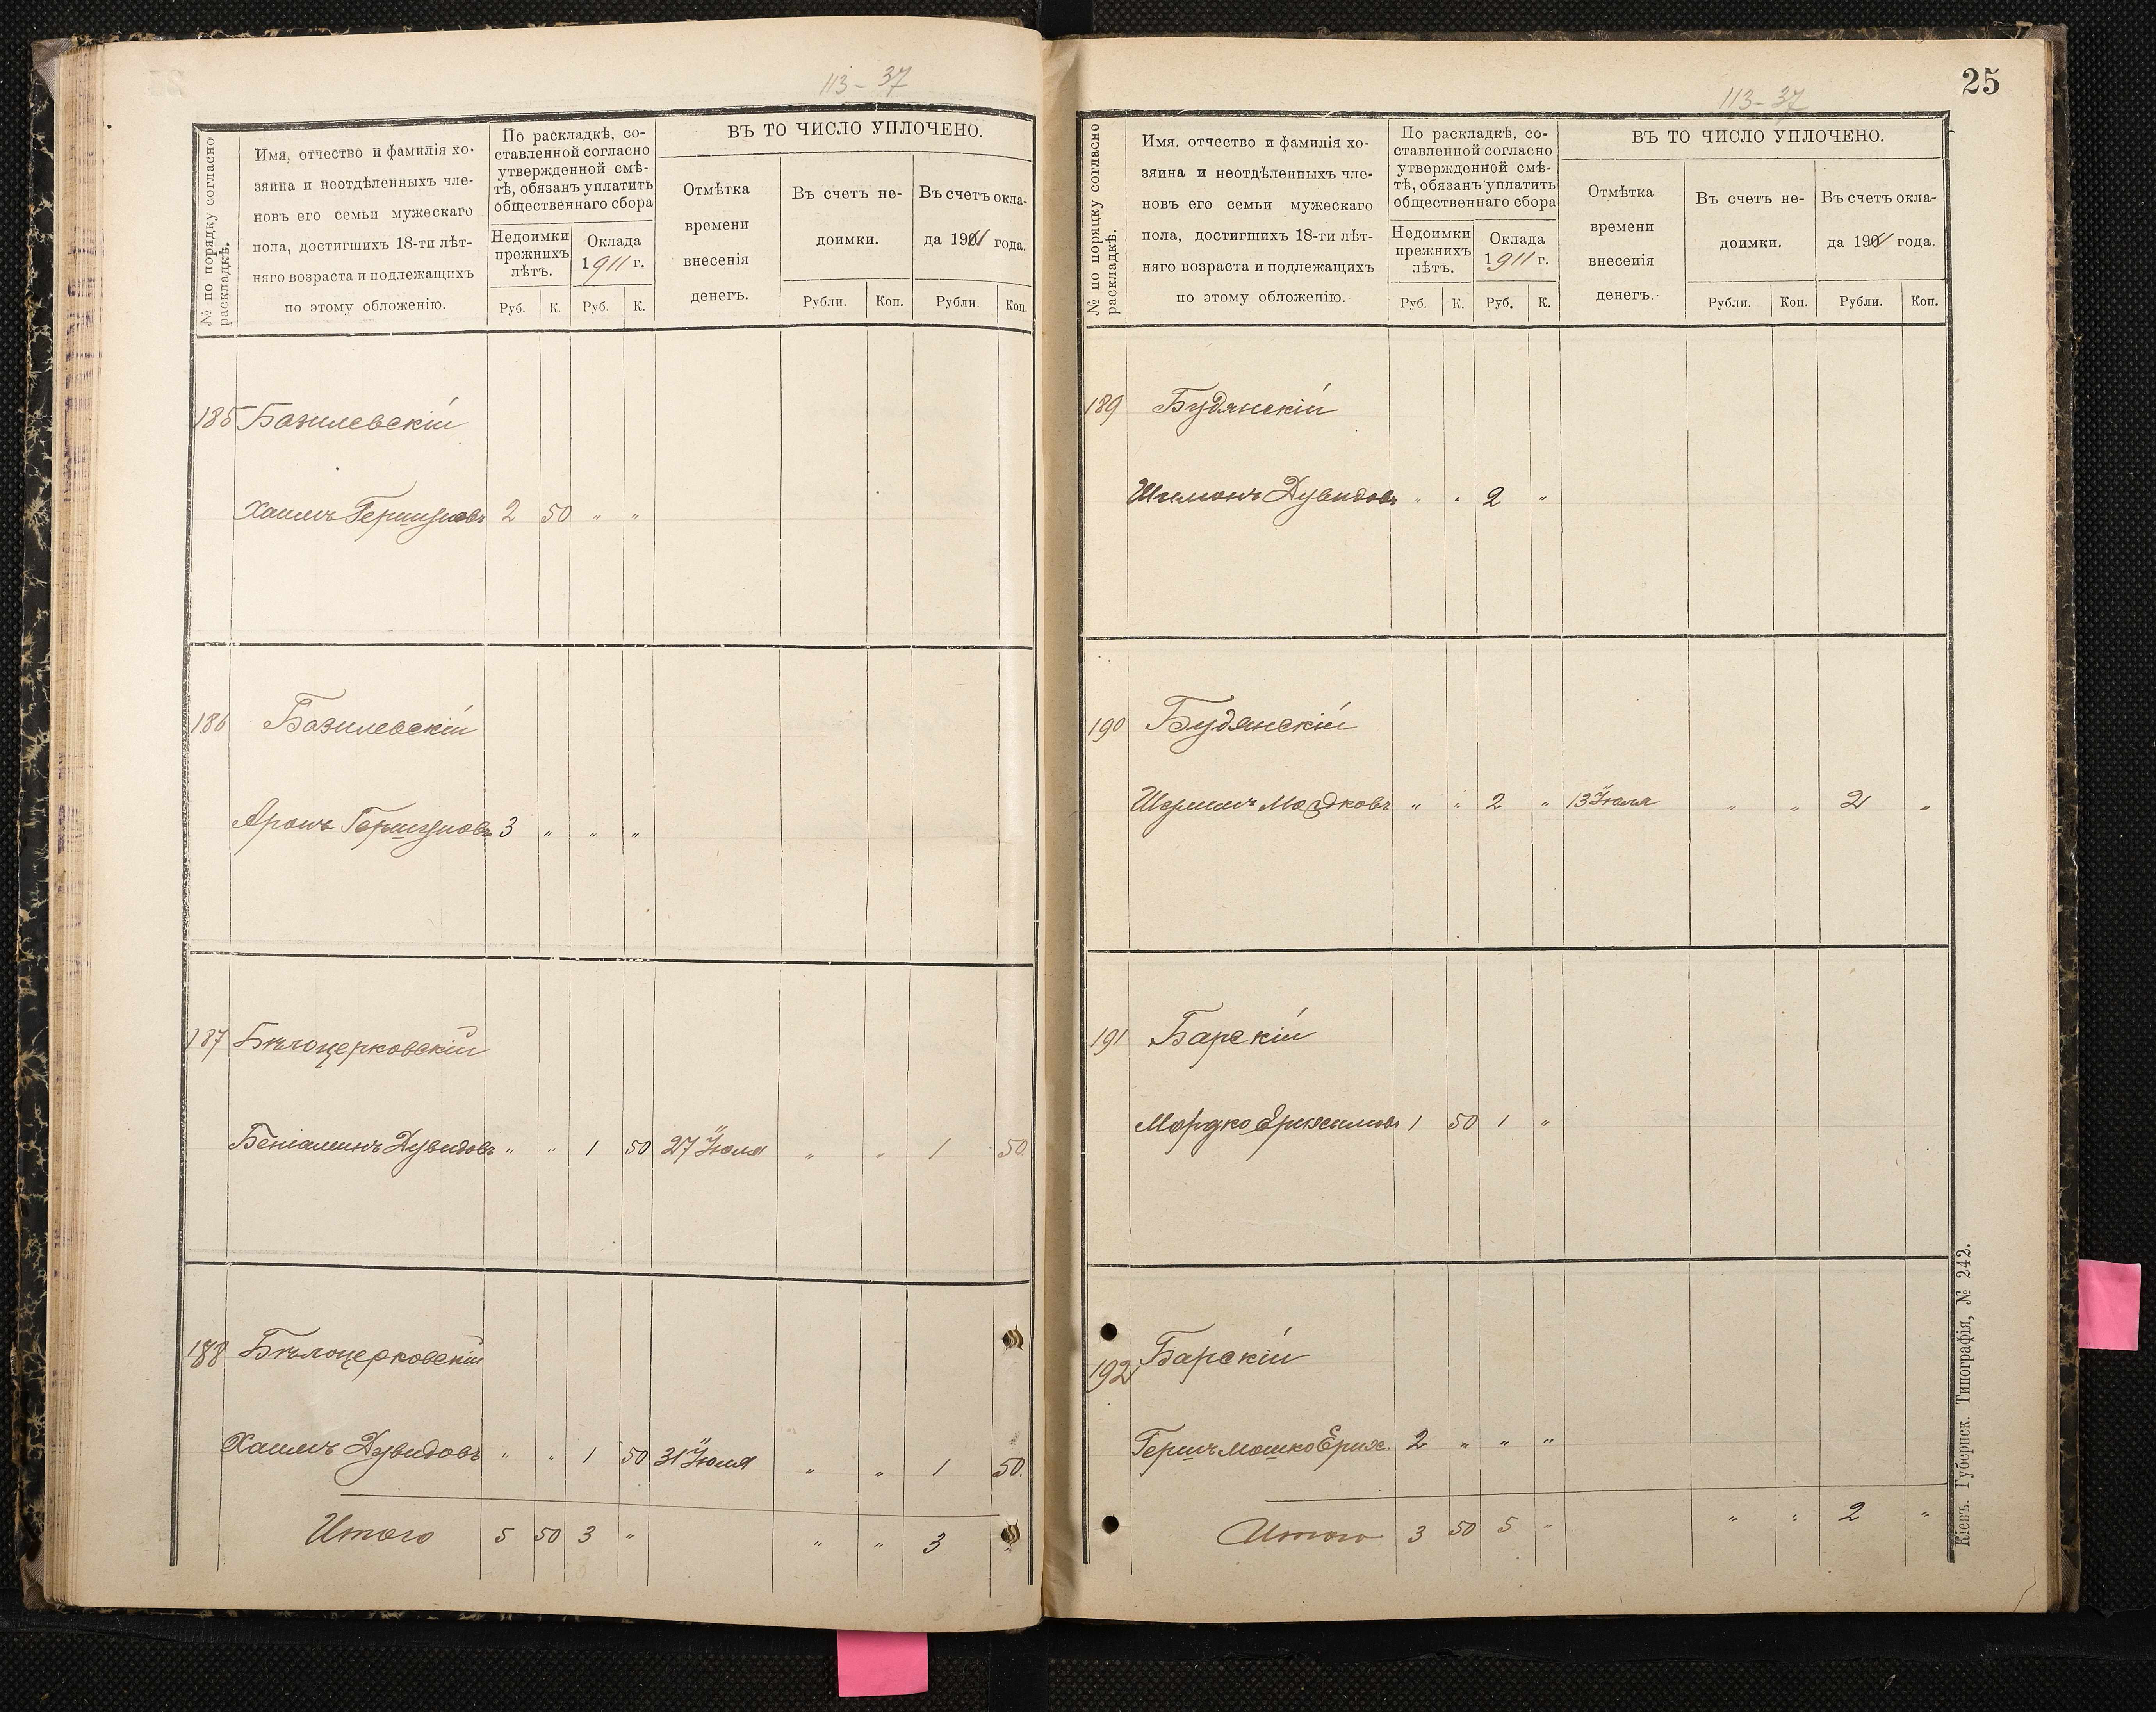 113-37
№ по порядку согласно
раскладкѣ.
Имя, отчество и фамилія хо-
зяина и неотдѣленныхъ чле-
новъ его семьи мужескаго
пола, достигшихъ 18-ти лѣт-
няго возраста и подлежащихъ
по этому обложенію.
По раскладкѣ, со-
ставленной согласно
утвержденной смѣ-
тѣ, обязанъ уплатить
общественнаго сбора
Недоимки
прежнихъ
лѣтъ.
Оклада
1911 г.
Руб. К. Руб. К.
ВЪ ТО ЧИСЛО УПЛОЧЕНО.
Отмѣтка
времени
внесенія
денегъ.
Въ счетъ не-
доимки.
Въ счетъ окла-
да 1911 года.
Рубли. Коп. Рубли. Коп.
185 Базилевскій
Хаимъ Гершуновъ 2 50 " "
186 Базилевскій
Аронъ Гершуновъ 3 " " "
187 Бѣлоцерковскій
Беніаминъ Дувидовъ " " 1 50 27 Іюля " " 1 50
188 Бѣлоцерковскій
Хаимъ Дувидовъ " " 1 50 31 Іюля " " 1 50.
Итого 5 50 3 " " " 3 "
25
113-37
№ по порядку согласно
раскладкѣ.
Имя, отчество и фамилія хо-
зяина и неотдѣленныхъ чле-
новъ его семьи мужескаго
пола, достигшихъ 18-ти лѣт-
няго возраста и подлежащихъ
по этому обложенію.
По раскладкѣ, со-
ставленной согласно
утвержденной смѣ-
тѣ, обязанъ уплатить
общественнаго сбора
Недоимки
прежнихъ
лѣтъ.
Оклада
1911 г.
Руб. К. Руб. К.
ВЪ ТО ЧИСЛО УПЛОЧЕНО.
Отмѣтка
времени
внесенія
денегъ.
Въ счетъ не-
доимки.
Въ счетъ окла-
да 1911 года.
Рубли. Коп. Рубли. Коп.
189 Будянскій
Шимонъ Дувидовъ " " 2 "
190 Будянскій
Мордковъ " " 2 " 13 Іюля " " 2 "
191 Барскій
Мордко 1 50 1 "
192 Барскій
Гершъ Мошко Ерих. 2 " " "
Итого 3 50 5 " " " 2 "
Кіевъ. Губернск. Типографія, № 242.